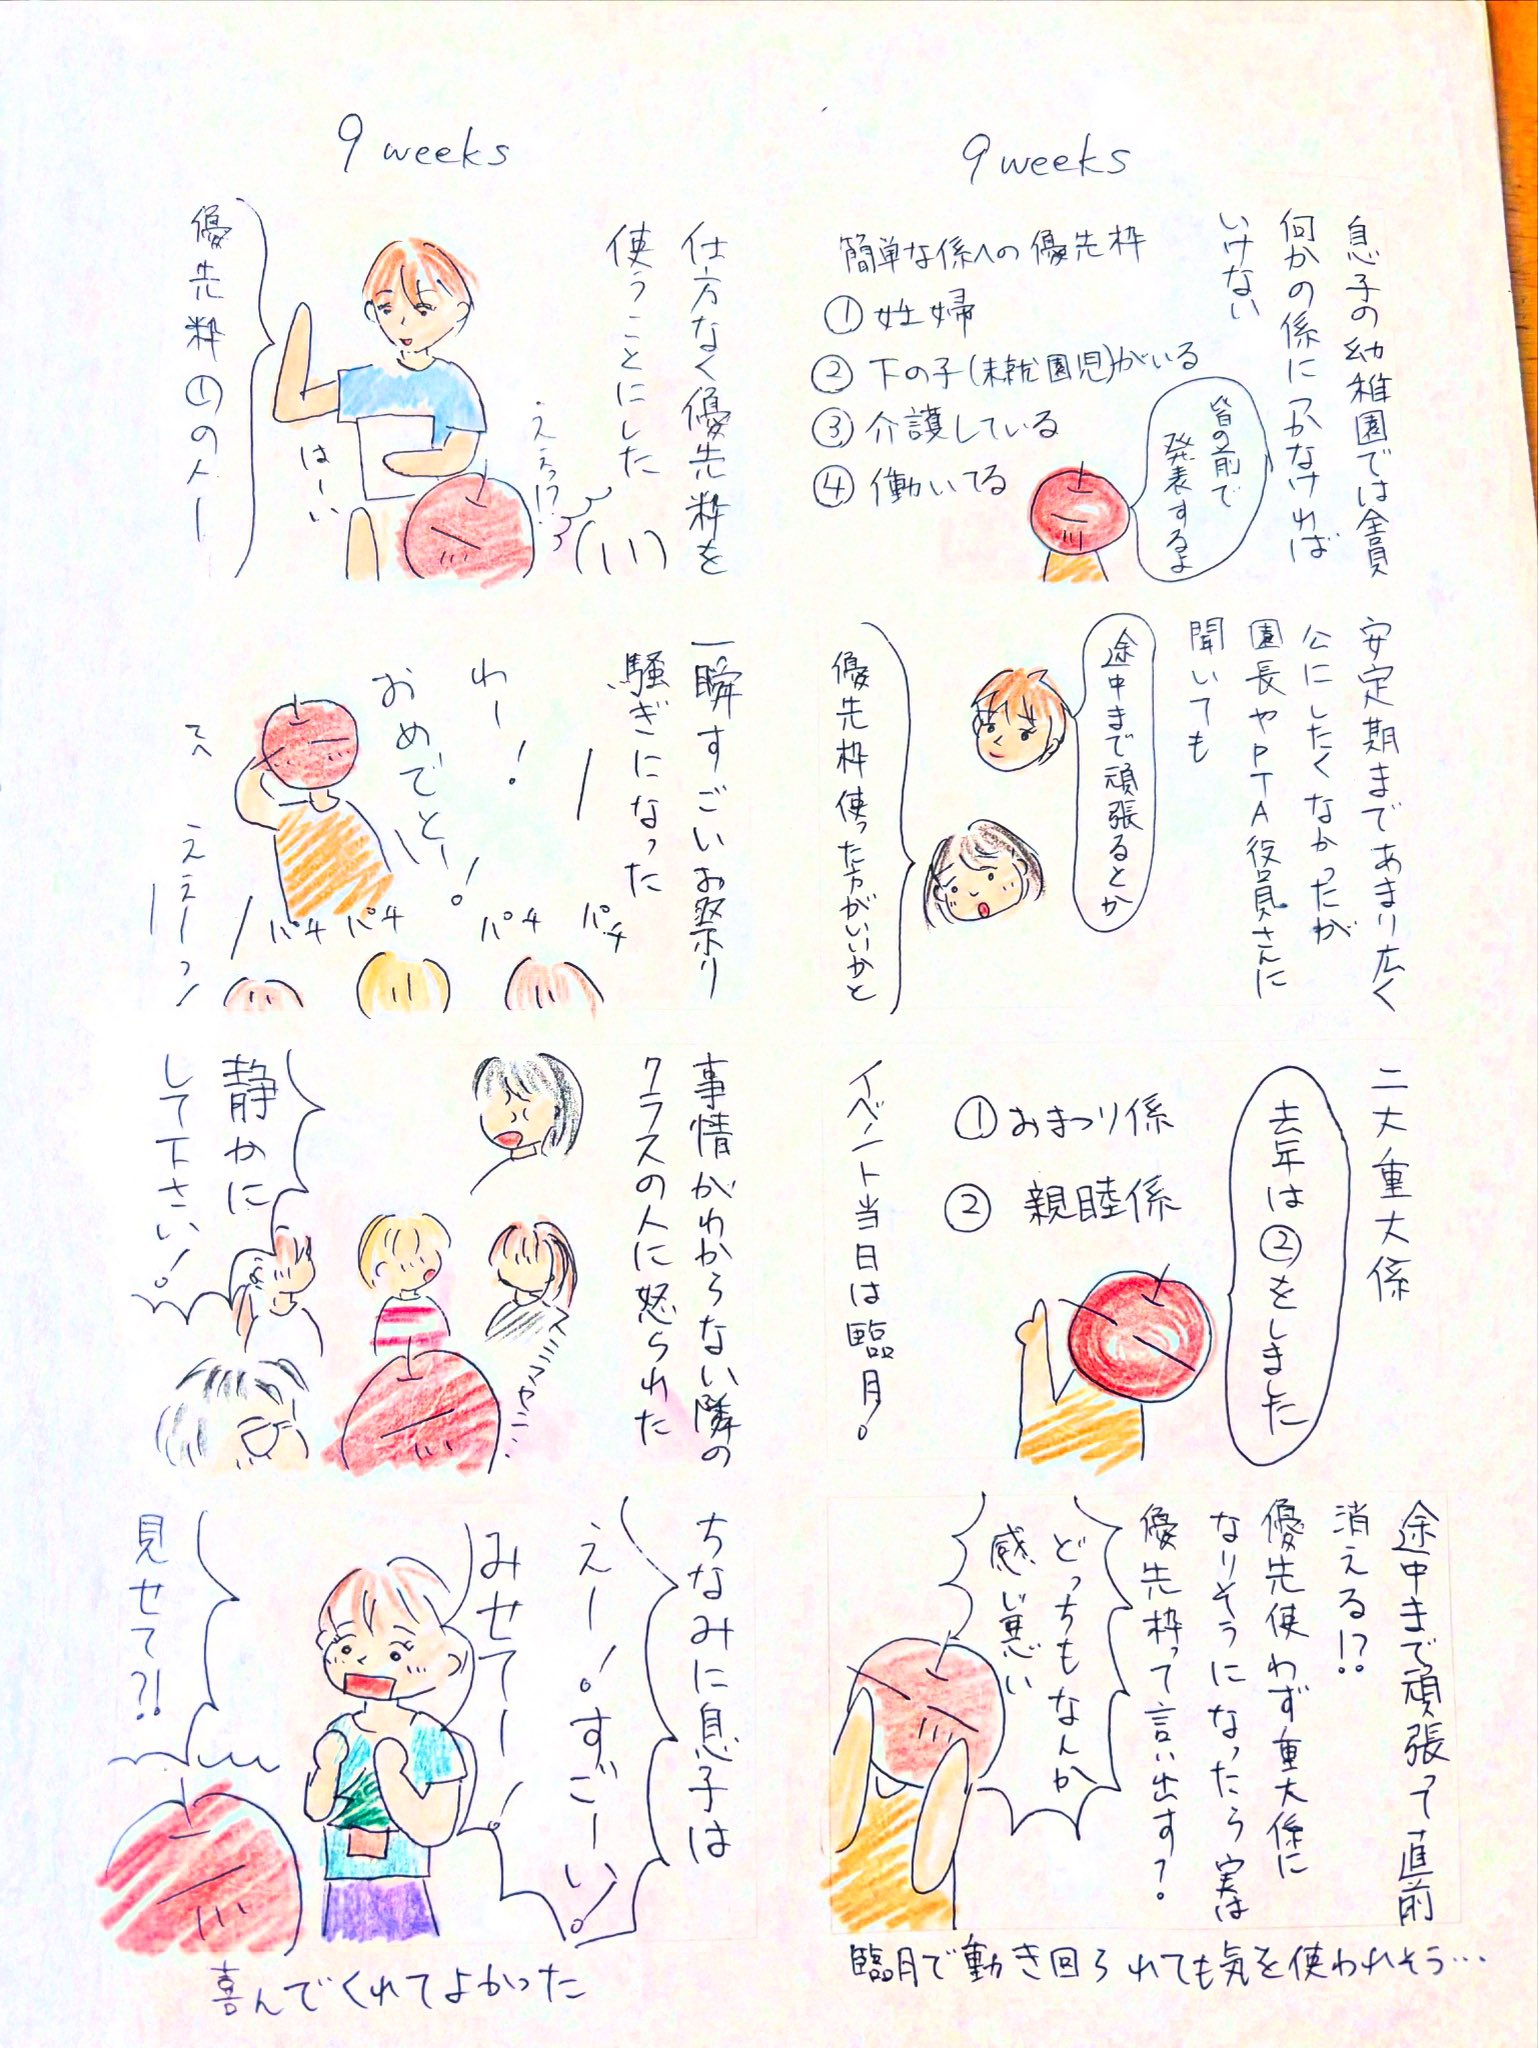 9 weeks
息子の幼稚園では全員
何かの係につかなければ
いけない
簡単な係への優先枠
①妊婦
②下の子(未就園児)がいる
③介護している
④働いてる
皆の前で
発表するよ
安定期まであまり広く
公にしたくなかったが
園長やPTA役員さんに
聞いても
途中まで頑張るとか
優先枠使った方がいいかと
二大重大係
去年は②をしました
①おまつり係
②親睦係
イベント当日は臨月!
途中まで頑張って直前
消える!?
優先使わず重大係に
なりそうになったら実は
優先枠って言い出す?
どっちもなんか
感じ悪い
臨月で動き回られても気を使われそう…
9 weeks
仕方なく優先枠を
使うことにした
ええっ!?
はーい
優先枠①の人ー
一瞬すごいお祭り
騒ぎになった
わー!
おめでとー!
てへ
ええーっ
パチ パチ パチ パチ
事情がわからない隣の
クラスの人に怒られた
スミマセーン…
静かに
して下さい!
ちなみに息子は
えー!すごーい!
みせてー!
見せて?!
喜んでくれてよかった